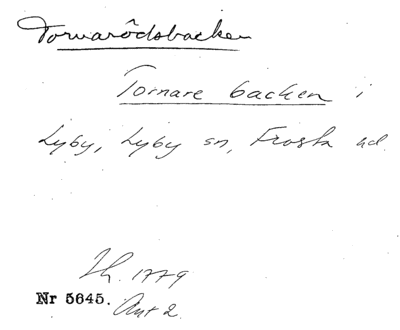 Tornarödsbacken
Tornare backen i
Lyby, Lyby sn, Frosta hd.
Lh. 1779
Nr 5645. Akt 2